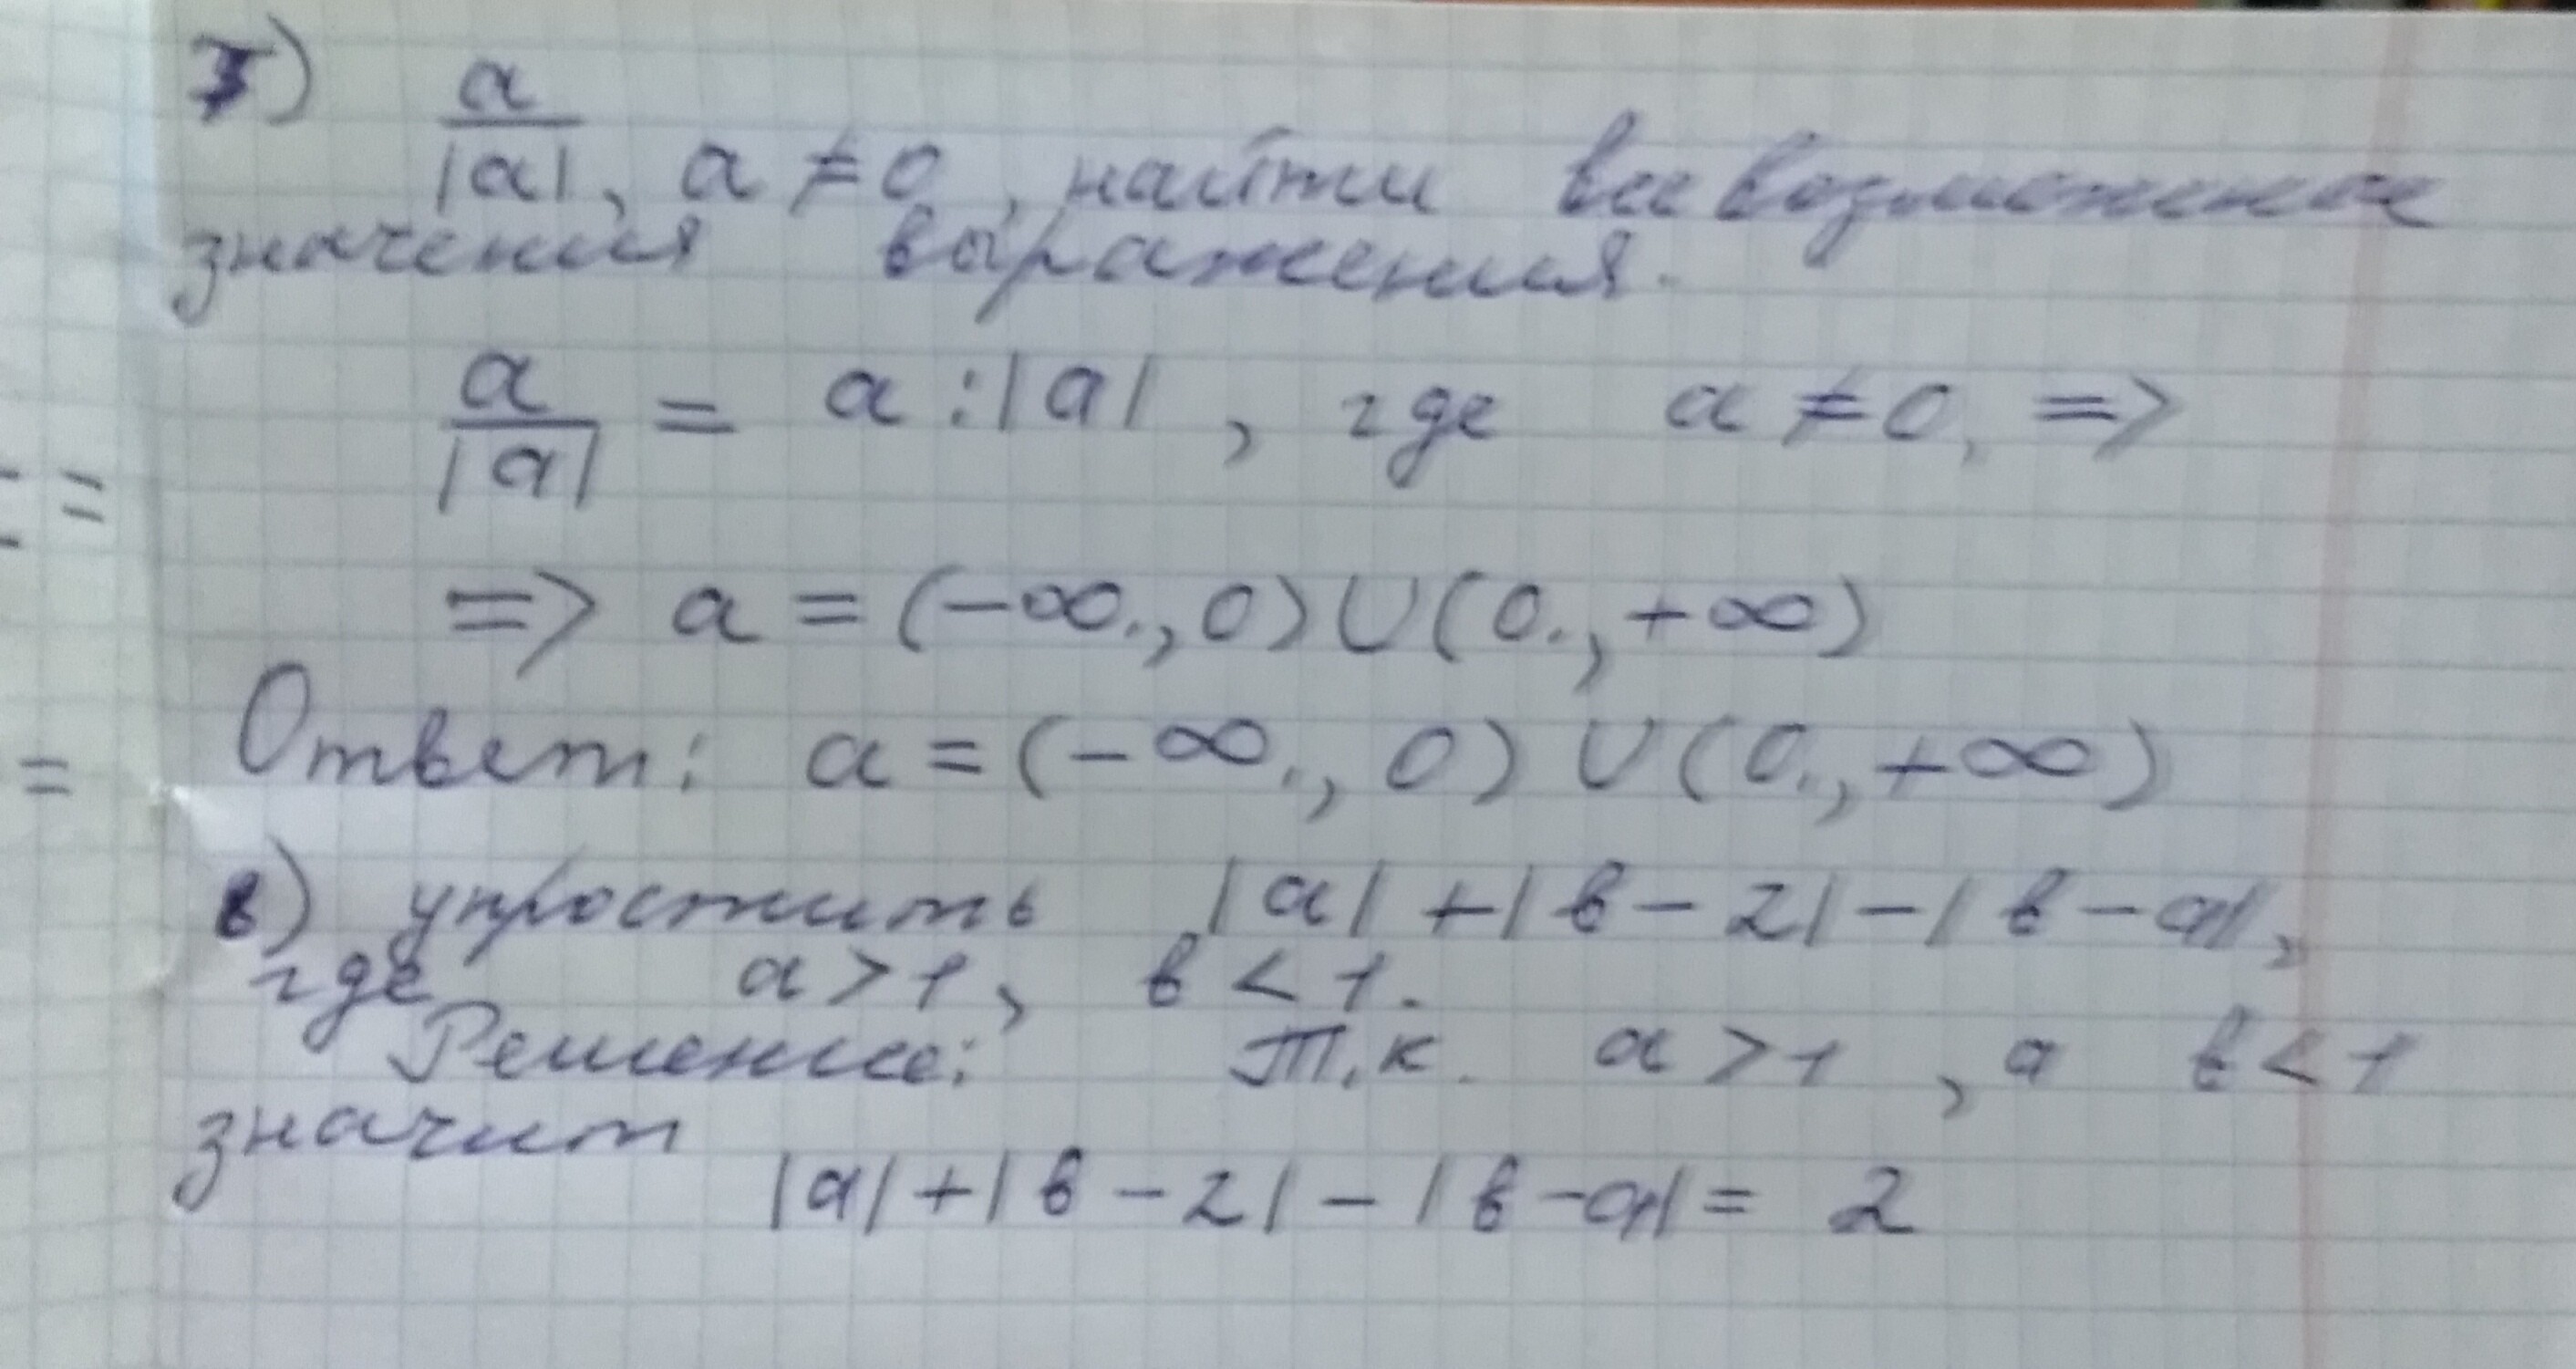 7) a/|a|, a ≠ 0, найти все возможные
значения выражения.
a/|a| = a : |a|, где a ≠ 0, =>
=> a = (-∞., 0) ∪ (0., +∞)
Ответ: a = (-∞., 0) ∪ (0., +∞)
в) упростить |a| + |в - 2| - |в - a|,
где a > 1, в < 1.
Решение: Т.к. a > 1, а в < 1
значит
|a| + |в - 2| - |в - a| = 2
= =
=